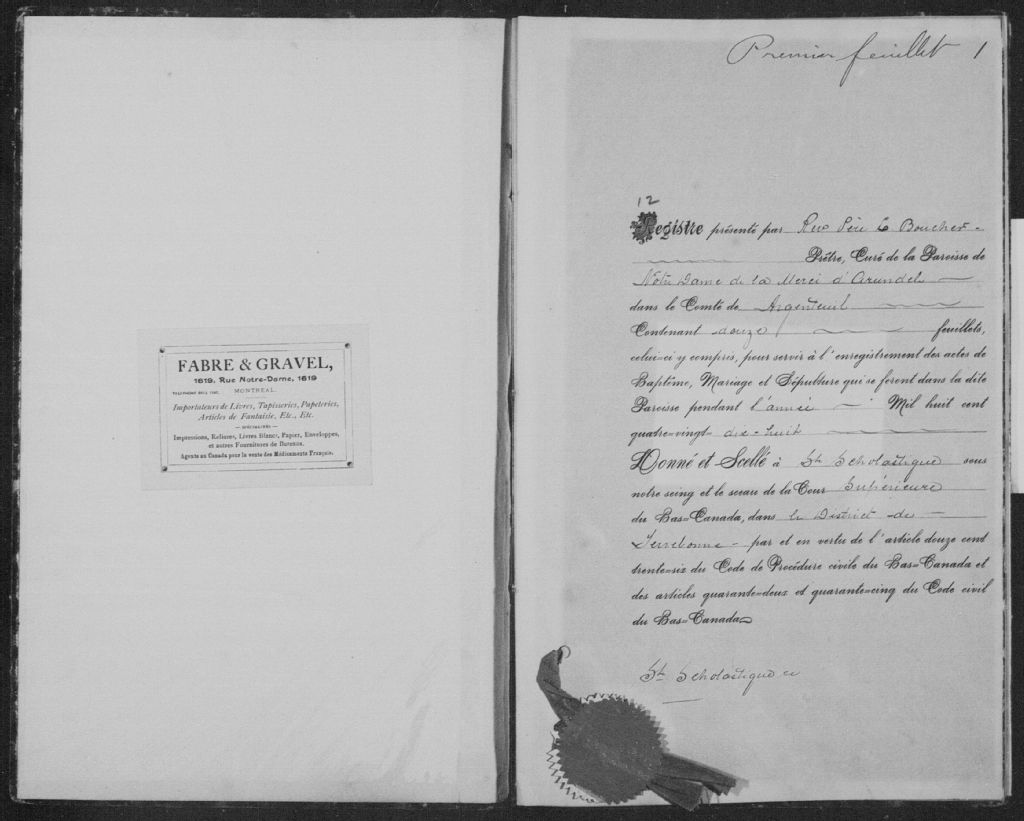 FABRE & GRAVEL,
1619, Rue Notre-Dame, 1619
MONTREAL.
Importateurs de Livres, Tapisseries, Papeteries,
Articles de Fantaisie, Etc., Etc.
— SPÉCIALITÉS —
Impressions, Reliures, Livres Blancs, Papier, Enveloppes,
et autres Fournitures de Bureaux.
Agents au Canada pour la vente des Médicaments Français.
Premier feuillet 1
12
Registre présenté par Rev Père E Boucher
Prêtre, Curé de la Paroisse de
Notre Dame de la Merci d'Arundel
dans le Comté de Argenteuil
Contenant douze feuillets,
celui=ci y compris, pour servir à l'enregistrement des actes de
Baptême, Mariage et Sépulture qui se feront dans la dite
Paroisse pendant l'année Mil huit cent
quatre=vingt- dix-huit
Donné et Scellé à St Scholastique sous
notre seing et le sceau de la Cour Supérieure
du Bas=Canada, dans le District de
Terrebonne - par et en vertu de l'article douze cent
trente=six du Code de Procédure civile du Bas=Canada et
des articles quarante=deux et quarante=cinq du Code civil
du Bas=Canada
St Scholastique ce